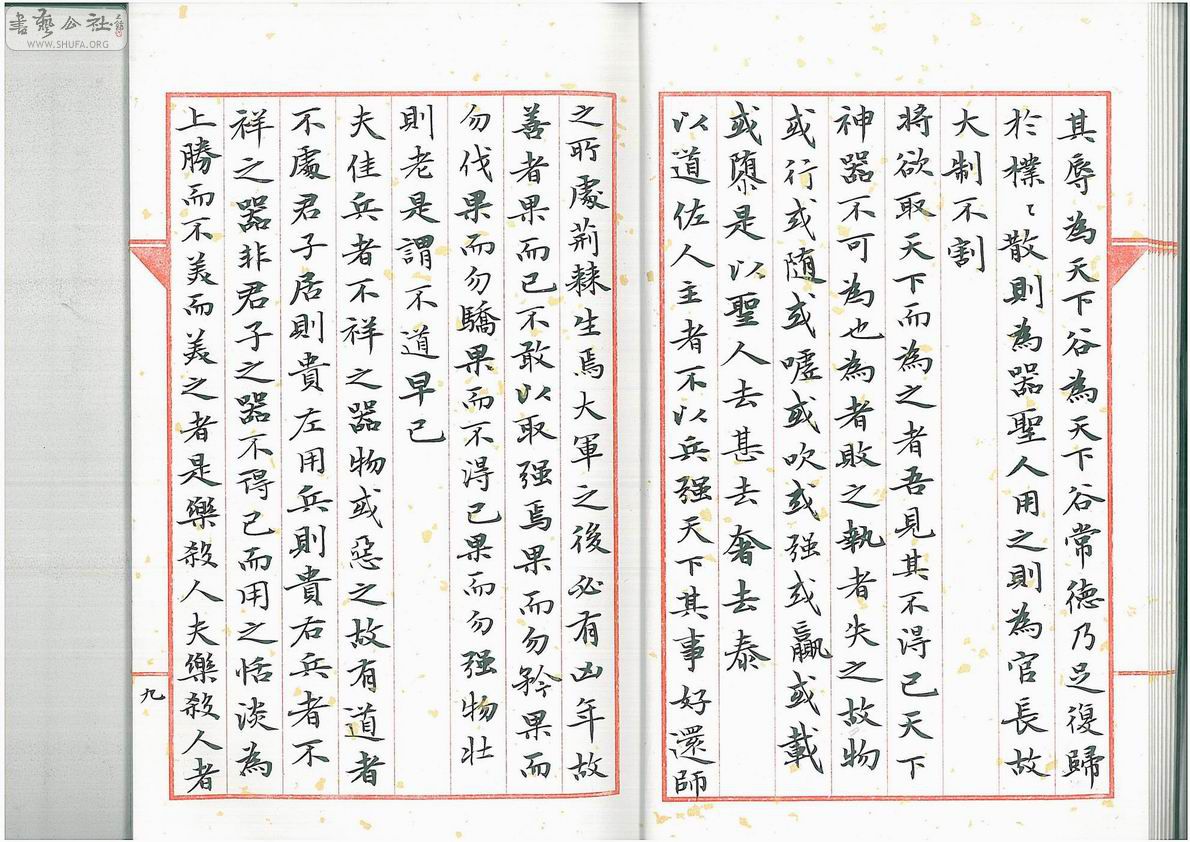 其辱為天下谷為天下谷常德乃足復歸
於樸〻散則為器聖人用之則為官長故
大制不割
將欲取天下而為之者吾見其不得已天下
神器不可為也為者敗之執者失之故物
或行或随或噓或吹或强或羸或載
或隳是以聖人去甚去奢去泰
以道佐人主者不以兵强天下其事好還師
之所處荊棘生焉大軍之後必有凶年故
善者果而已不敢以取强焉果而勿矜果而
勿伐果而勿驕果而不得已果而勿强物壯
則老是謂不道早已
夫佳兵者不祥之器物或惡之故有道者
不處君子居則貴左用兵則貴右兵者不
祥之器非君子之器不得已而用之恬淡為
上勝而不美而美之者是樂殺人夫樂殺人者
九
書藝公社
WWW.SHUFA.ORG